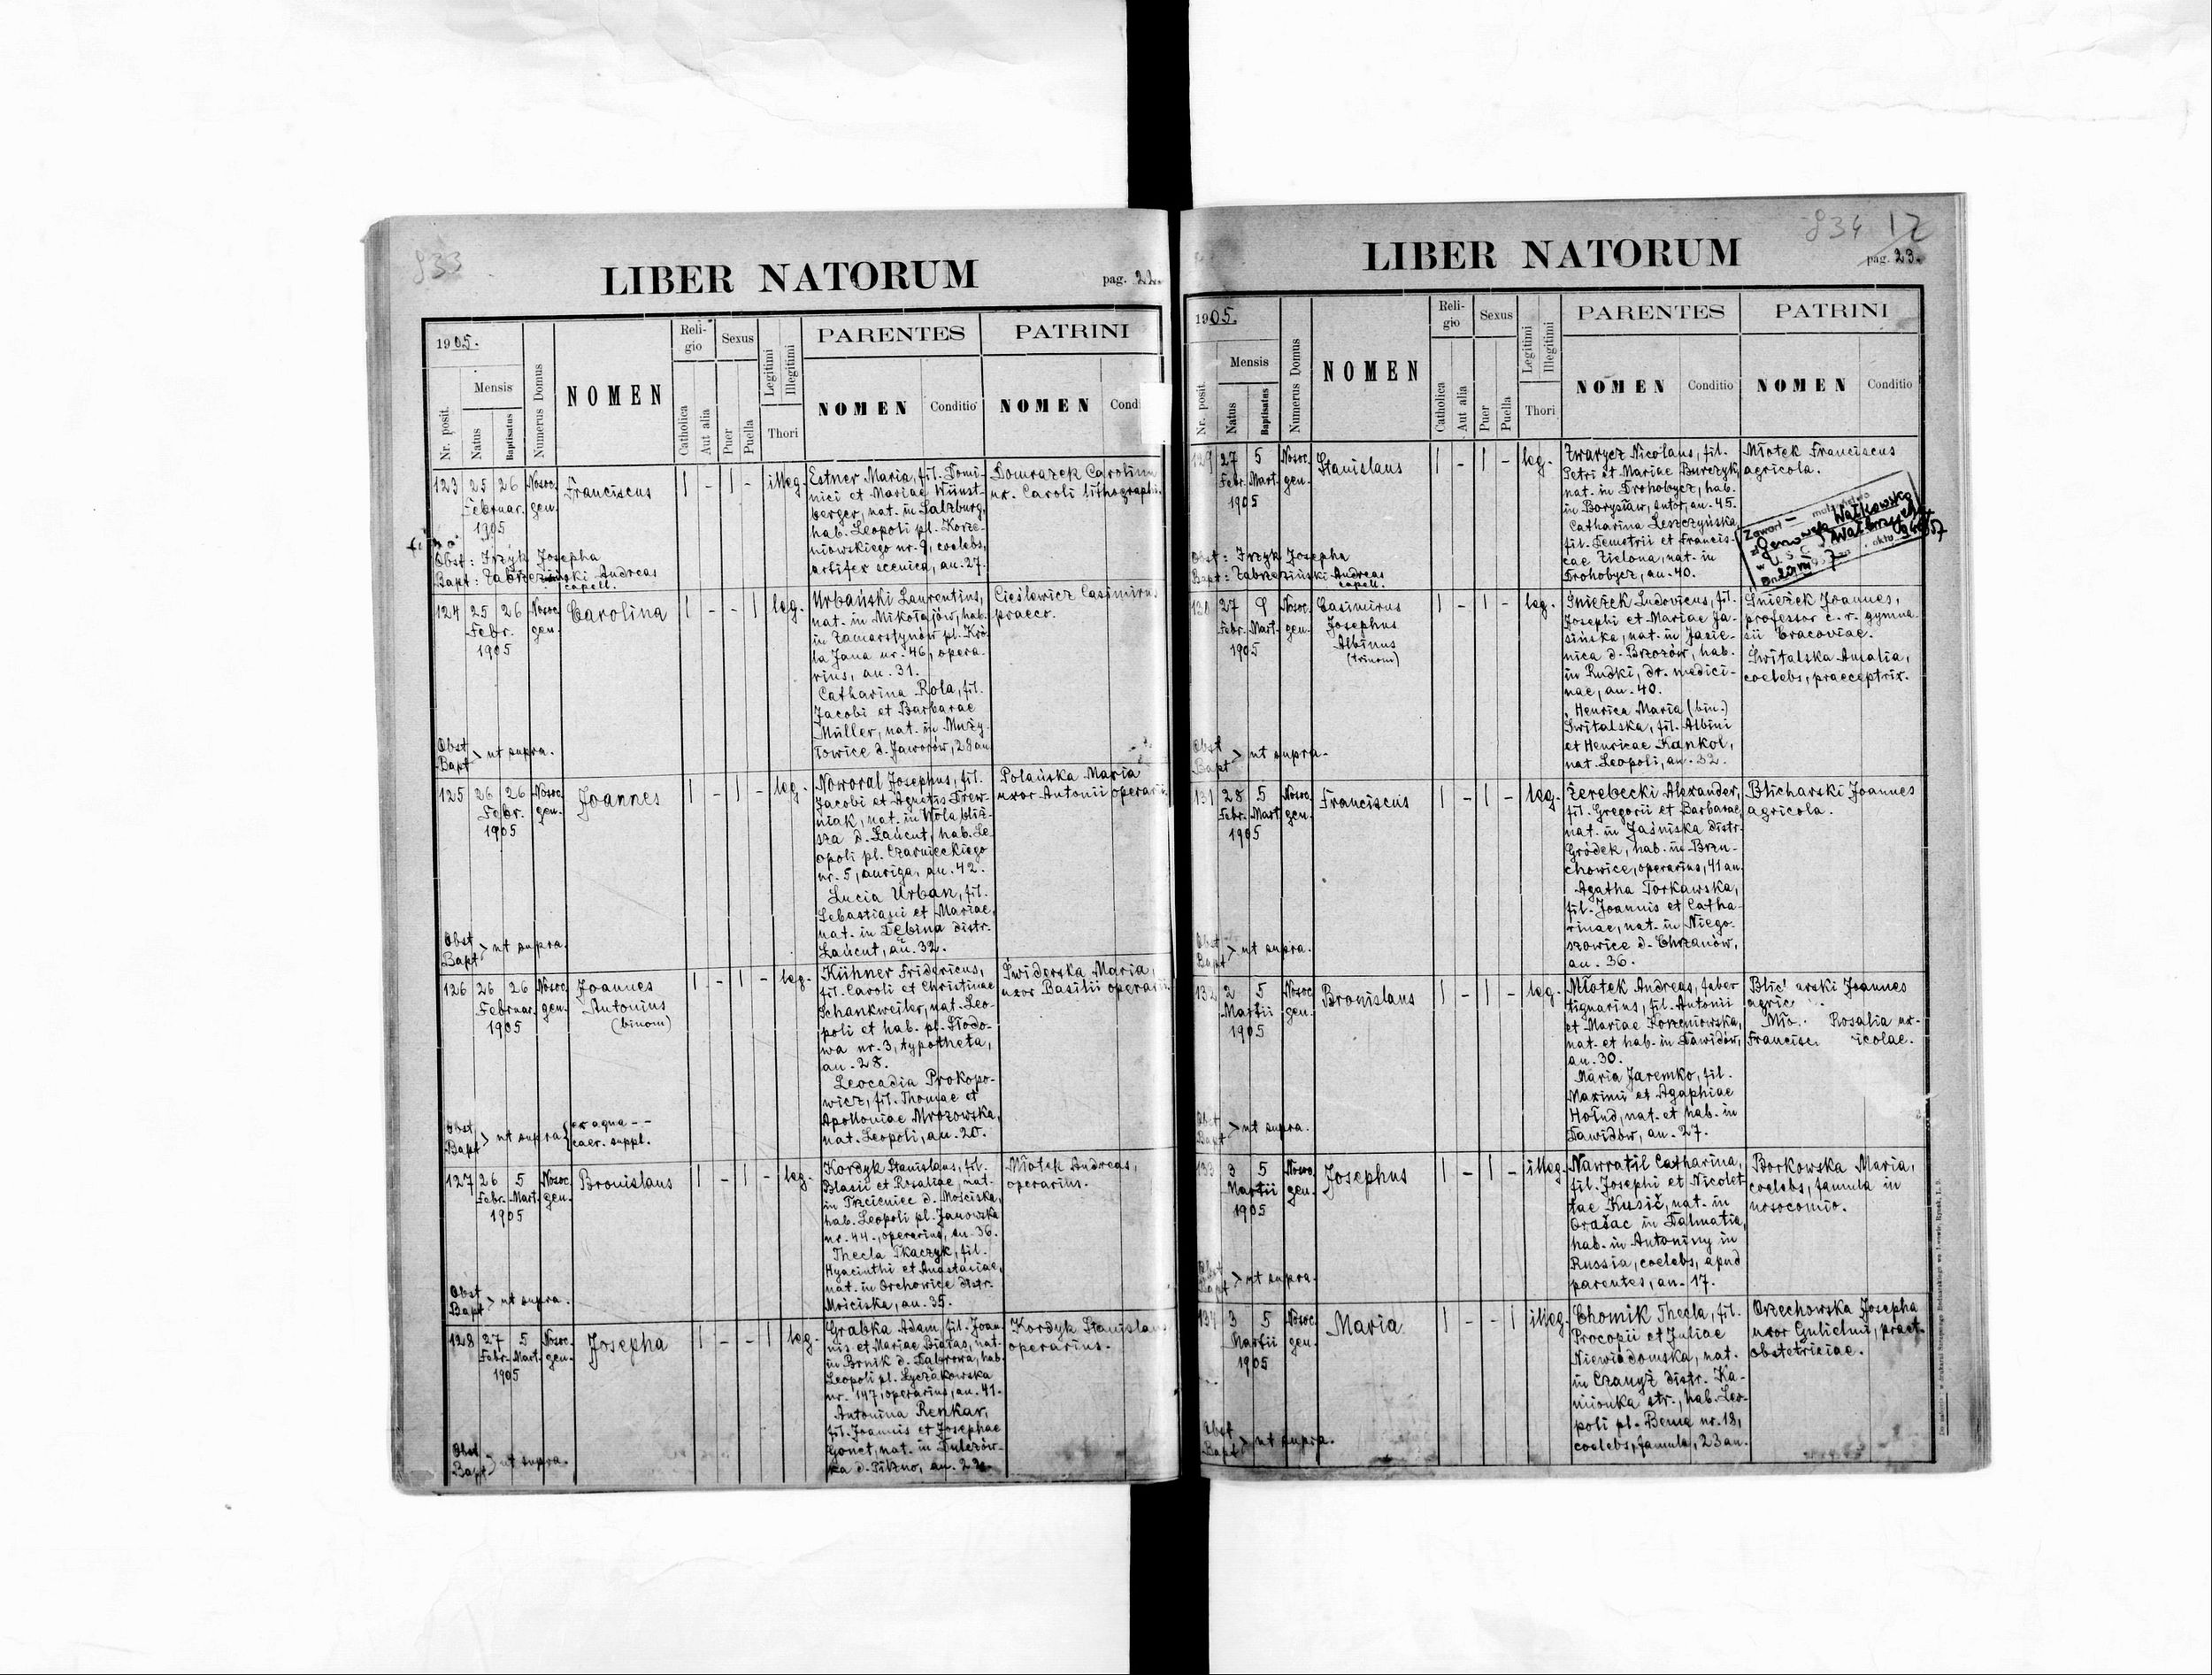 833
LIBER NATORUM
pag. 22.
1905.
Mensis
Nr. posit.
Natus
Baptisatus
Numerus Domus
NOMEN
Reli-
gio
Catholica
Aut alia
Sexus
Puer
Puella
Legitimi
Illegitimi
Thori
PARENTES
NOMEN
Conditio
PATRINI
NOMEN
Condi
123
25 26
Februar.
1905
Nosoc.
gen.
Franciscus
1 - 1 -
illeg.
Estner Maria, fil. Domi-
nici et Mariae Wünst-
berger, nat. in Salzburg,
hab. Leopoli pl. Korze-
niowskiego nr. 9, coelebs,
artifex scenica, an. 27.
Domrazek Carolina
ux. Caroli lithographi.
Obst: Fryzk Josepha
Bapt: Andreas
capell.
124
25 26
Febr.
1905
Nosoc.
gen.
Carolina
1 - - 1
leg.
Urbański Laurentius,
nat. in Mikołajów, hab.
in Zamarstynów pl. Kró-
la Jana nr. 46, opera-
rius, an. 31.
Catharina Rola, fil.
Jacobi et Barbarae
Müller, nat. in Muży-
łowice d. Jaworów, 28 an.
Cieślewicz Casimirus
praeco.
Obst
Bapt > ut supra.
125
26 26
Febr.
1905
Nosoc.
gen.
Joannes
1 - 1 -
leg.
Noworal Josephus, fil.
Jacobi et Agnetis Drew-
niak, nat. in Wola bliż-
sza d. Łańcut, hab. Le-
opoli pl. Czarnieckiego
nr. 5, auriga, an. 42.
Lucia Urban, fil.
Sebastiani et Mariae,
nat. in Dębina distr.
Łańcut, an. 32.
Polańska Maria
uxor Antonii operarii
Obst
Bapt > ut supra.
126
26 26
Februar.
1905
Nosoc.
gen.
Joannes
Antonius
(binom)
1 - 1 -
leg.
Kühner Fridericus,
fil. Caroli et Christinae
Schankweiler, nat. Leo-
poli et hab. pl. Słodo-
wa nr. 3, typotheta,
an. 28.
Leocadia Prokopo-
wicz, fil. Thomae et
Apolloniae Mrozowska,
nat. Leopoli, an. 20.
Świderska Maria,
uxor Basilii operarii
Obst
Bapt > ut supra { ex aqua - -
caer. suppl.
127
26 5
Febr. Mart.
1905
Nosoc.
gen.
Bronislaus
1 - 1 -
leg.
Kordyk Stanislaus, fil.
Blasii et Rosaliae, nat.
in Trzcieniec d. Mościska,
hab. Leopoli pl. Janowska
nr. 44, operarius, an. 36.
Thecla Tkaczyk, fil.
Hyacinthi et Anastasiae,
nat. in Orchowice distr.
Mościska, an. 35.
Młotek Andreas,
operarius.
Obst
Bapt > ut supra.
128
27 5
Febr. Mart.
1905
Nosoc.
gen.
Josepha
1 - - 1
leg.
Grabka Adam, fil. Joan-
nis et Mariae Białas, nat.
in Brnik d. Dąbrowa, hab.
Leopoli pl. Łyczakowska
nr. 147, operarius, an. 41.
Antonina Renkar,
fil. Joannis et Josephae
Gonet, nat. in Dulczów-
ka d. Pilzno, an.
Kordyk Stanislaus
operarius.
Obst
Bapt > ut supra.
834 12
LIBER NATORUM
pag. 23.
1905.
Mensis
Nr. posit.
Natus
Baptisatus
Numerus Domus
NOMEN
Reli-
gio
Catholica
Aut alia
Sexus
Puer
Puella
Legitimi
Illegitimi
Thori
PARENTES
NOMEN
Conditio
PATRINI
NOMEN
Conditio
129
27 5
Febr. Mart.
1905
Nosoc.
gen.
Stanislaus
1 - 1 -
leg.
Zwarycz Nicolaus, fil.
Petri et Mariae Burczyk,
nat. in Drohobycz, hab.
in Borysław, sutor, an. 45.
Catharina Leszczyńska,
fil. Demetrii et Francis-
cae Zielona, nat. in
Drohobycz, an. 40.
Młotek Franciscus
agricola.
Zawarł
Wałkowska
Obst: Fryzk Josepha
Bapt: Zabrzeziński Andreas
capell.
130
27 9
Febr. Mart.
1905
Nosoc.
gen.
Casimirus
Josephus
Albinus
(trinom)
1 - 1 -
leg.
Śnieżek Ludovicus, fil.
Josephi et Mariae Ja-
sińska, nat. in Jasie-
nica d. Brzozów, hab.
in Rudki, dr. medici-
nae, an. 40.
Henrica Maria (bin.)
Świtalska, fil. Albini
et Henricae Kankol,
nat. Leopoli, an. 32.
Śnieżek Joannes,
professor c. r. gymna-
sii Cracoviae.
Świtalska Amalia,
coelebs, praeceptrix.
Obst
Bapt > ut supra.
131
28 5
Febr. Mart.
1905
Nosoc.
gen.
Franciscus
1 - 1 -
leg.
Żerebecki Alexander,
fil. Gregorii et Barbarae,
nat. in Jaśniska distr.
Gródek, hab. in Brzu-
chowice, operarius, 41 an.
Agatha Torkawska,
fil. Joannis et Catha-
rinae, nat. in Niego-
szowice d. Chrzanów,
an. 36.
Blicharski Joannes
agricola.
Obst
Bapt > ut supra.
132
2 5
Martii
1905
Nosoc.
gen.
Bronislaus
1 - 1 -
leg.
Młotek Andreas, faber
tignarius, fil. Antonii
et Mariae Korzeniowska,
nat. et hab. in Dawidów,
an. 30.
Maria Jaremko, fil.
Maximi et Agaphiae
Hołud, nat. et hab. in
Dawidów, an. 27.
Blic arski Joannes
agric
Mło Rosalia ux.
Francisc ricolae.
Obst
Bapt > ut supra.
133
3 5
Martii
1905
Nosoc.
gen.
Josephus
1 - 1 -
illeg.
Nawratil Catharina,
fil. Josephi et Nicolet-
tae Kusič, nat. in
Orašac in Dalmatia,
hab. in Antoniny in
Russia, coelebs, apud
parentes, an. 17.
Borkowska Maria,
coelebs, famula in
nosocomio.
Obst
Bapt > ut supra.
134
3 5
Martii
1905
Nosoc.
gen.
Maria
1 - - 1
illeg.
Chomik Thecla, fil.
Procopii et Juliae
Niewiadomska, nat.
in Czanyż distr. Ka-
mionka str., hab. Leo-
poli pl. Bema nr. 18,
coelebs, famula, 23 an.
Orzechowska Josepha
uxor Gulielmi, pract.
obstetriciae.
Obst
Bapt > ut supra.